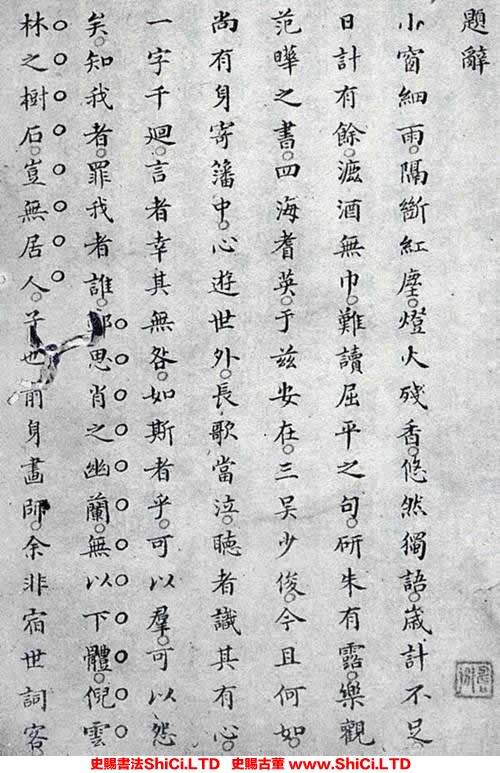 題辭
小窗細雨。隔斷紅塵。燈火殘香。悠然獨語。歲計不足。
日計有餘。漉酒無巾。難讀屈平之句。研朱有露。樂觀
范曄之書。四海耆英。于茲安在。三吳少俊。今且何如。
尚有身寄藩中。心遊世外。長歌當泣。聽者識其有心。
一字千迴。言者幸其無咎。如斯者乎。可以羣。可以怨
矣。知我者。罪我者誰。思肖之幽蘭。無以下體。倪雲
林之樹石。豈無居人。子也前身畫師。余非宿世詞客
史賜書法ShiCi.LTD 史賜古董 www.ShiCi.LTD